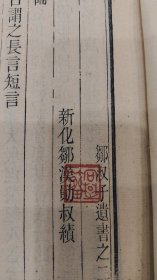 鄒叔子遺書之二
新化鄒漢勛叔績
謂之長言短言